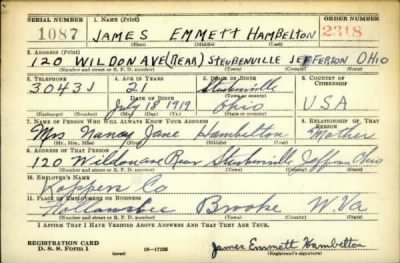 SERIAL NUMBER 1. NAME (Print) ORDER NUMBER
1087 JAMES EMMETT HAMBELTON 2318
(First) (Middle) (Last)
2. ADDRESS (Print)
120 WILDON AVE (REAR) STEUBENVILLE JEFFERSON OHIO
(Number and street or R. F. D. number) (Town) (County) (State)
3. TELEPHONE 4. AGE IN YEARS 5. PLACE OF BIRTH 6. COUNTRY OF CITIZENSHIP
3043J 21 Steubenville
DATE OF BIRTH (Town or county)
July 18 1919 Ohio USA
(Mo.) (Day) (Yr.) (State or country)
7. NAME OF PERSON WHO WILL ALWAYS KNOW YOUR ADDRESS 8. RELATIONSHIP OF THAT PERSON
Mrs Nancy Jane Hambelton Mother
(Mr., Mrs., Miss) (First) (Middle) (Last)
9. ADDRESS OF THAT PERSON
120 Wildon ave Rear Steubenville Jefferson Ohio
(Number and street or R. F. D. number) (Town) (County) (State)
10. EMPLOYER'S NAME
Koppers Co
11. PLACE OF EMPLOYMENT OR BUSINESS
Follansbee Brooke W Va
(Number and street or R. F. D. number) (Town) (County) (State)
I AFFIRM THAT I HAVE VERIFIED ABOVE ANSWERS AND THAT THEY ARE TRUE.
REGISTRATION CARD
D. S. S. Form 1 16-17105 James Emmett Hambelton
(Registrant's signature)